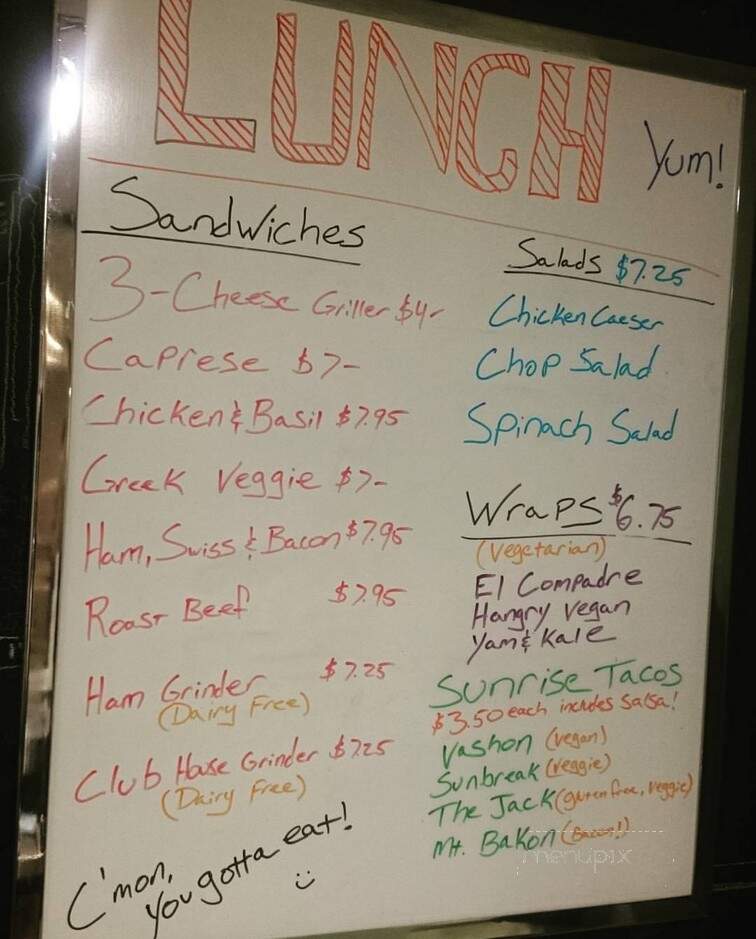 LUNCH
Yum!
Sandwiches
3-Cheese Griller $4-
Caprese $7-
Chicken & Basil $7.95
Greek Veggie $7-
Ham, Swiss & Bacon $7.95
Roast Beef $7.95
Ham Grinder $7.25
(Dairy Free)
Club House Grinder $7.25
(Dairy Free)
C'mon,
you gotta eat!
Salads $7.25
Chicken Caeser
Chop Salad
Spinach Salad
Wraps $6.75
(vegetarian)
El Compadre
Hangry Vegan
Yam & Kale
Sunrise Tacos
$3.50 each includes salsa!
Vashon (vegan)
Sunbreak (veggie)
The Jack (gluten free, veggie)
Mt. Bakon (Bacon!)
menupix